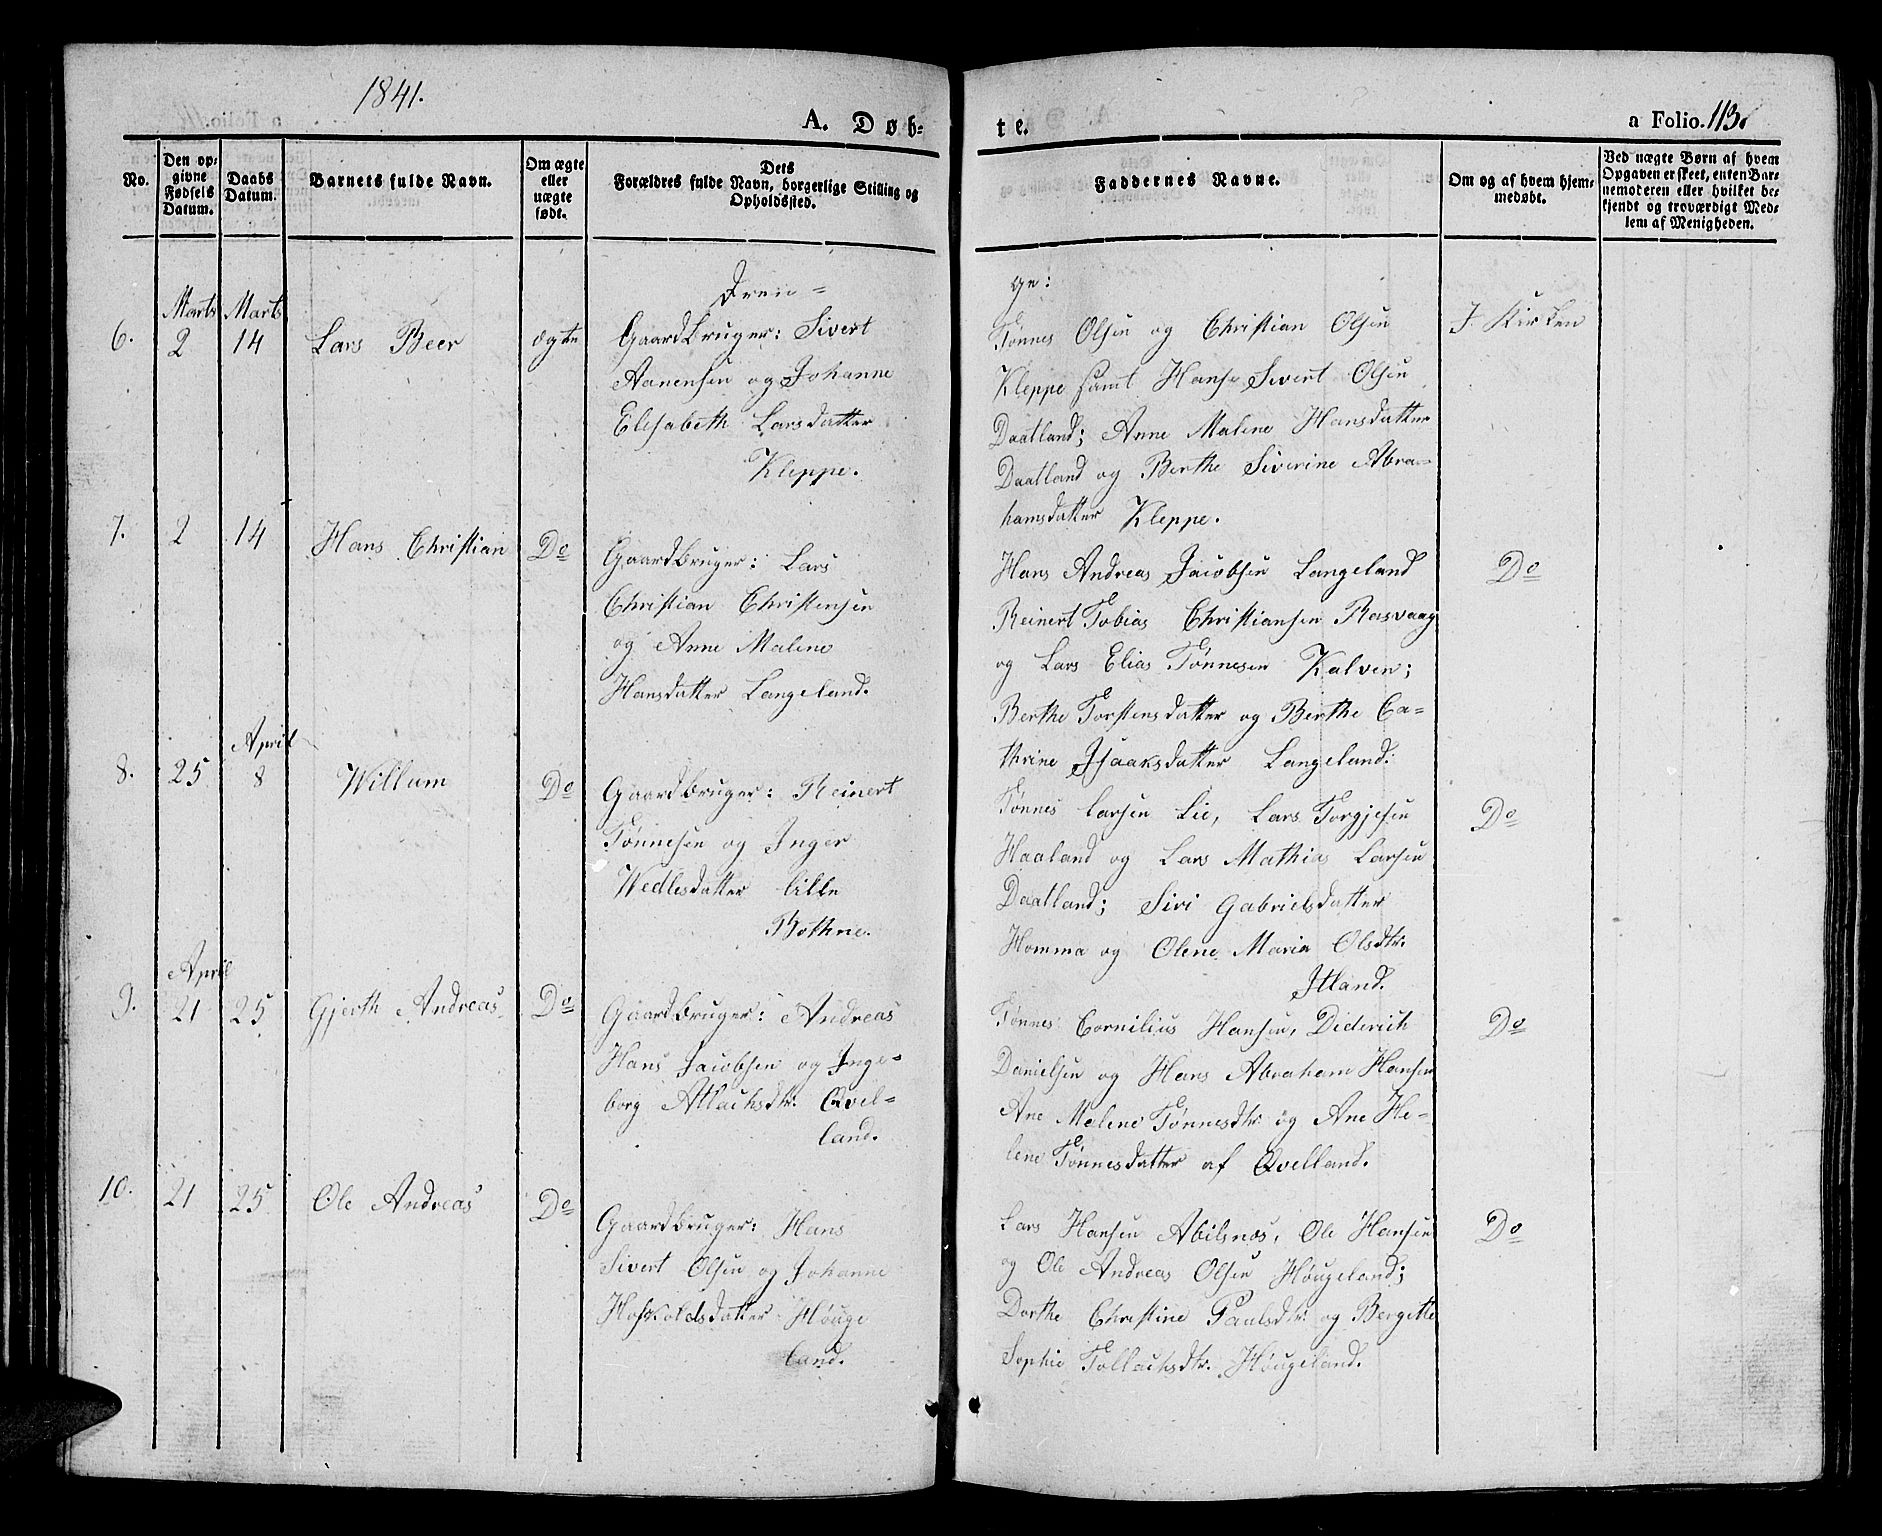 1841.
A. Døb-
te.
a Folio. 113.
No.
Den op-
givne
Fødsels
Datum.
Daabs
Datum.
Barnets fulde Navn.
Om ægte
eller
uægte
født.
Dets
Forældres fulde Navn, borgerlige Stilling og
Opholdssted.
Faddernes Navne.
Om og af hvem hjem-
medøbt.
Ved uægte Børn af hvem
Opgaven er skeet, enten Bar-
nemoderen eller hvilket be-
kjendt og troværdigt Med-
lem af Menigheden.
Dren=
ge:
Marts
Marts
6.
2
14
Lars Beer
ægte
Gaardbruger: Sivert
Aanensen og Johanne
Elisabeth Larsdatter
Kleppe.
Tønnes Olsen og Christian Olsen
Kleppe samt Hans Sivert Olsen
Daatland; Anne Malene Hansdatter
Daatland og Berthe Siverine Abra-
hamsdatter Kleppe.
I Kirken
7.
2
14
Hans Christian
Do
Gaardbruger: Lars
Christian Christensen
og Anne Malene
Hansdatter Langeland.
Hans Andreas Jacobsen Langeland
Reinert Tobias Christiansen Rasvaag
og Lars Elias Tønnesen Kalven;
Berthe Torstensdatter og Berthe Ca-
thrine Isaaksdatter Langeland.
Do
April
8.
25
8
Willum
Do
Gaardbruger: Reinert
Tønnesen og Inger
Wedlesdatter lille
Bothne.
Tønnes Larsen Lie, Lars Torgjesen
Haaland og Lars Mathias Larsen
Daatland; Siri Gabrielsdatter
Homma og Olene Maria Olsdtr.
Itland.
Do
April
9.
21
25
Gjerth Andreas
Do
Gaardbruger: Andreas
Hans Jacobsen og Inge-
borg Atlachsdtr. Qvel-
land.
Tønnes Cornilius Hansen, Diderich
Danielsen og Hans Abraham Hansen
Ane Malene Tønnesdtr og Ane He-
lene Tønnesdatter af Qvelland.
Do
10.
21
25
Ole Andreas
Do
Gaardbruger: Hans
Sivert Olsen og Johanne
Hofskoldsdatter Høuge
land.
Lars Hansen Abilsnes, Ole Hansen
og Ole Andreas Olsen Høugeland;
Dorthe Christine Paulsdtr. og Bergitte
Sophie Tollachsdtr. Høugeland.
Do